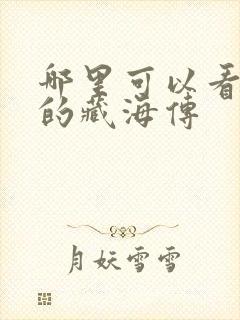 哪里可以看
的藏海传
月妖雪雪